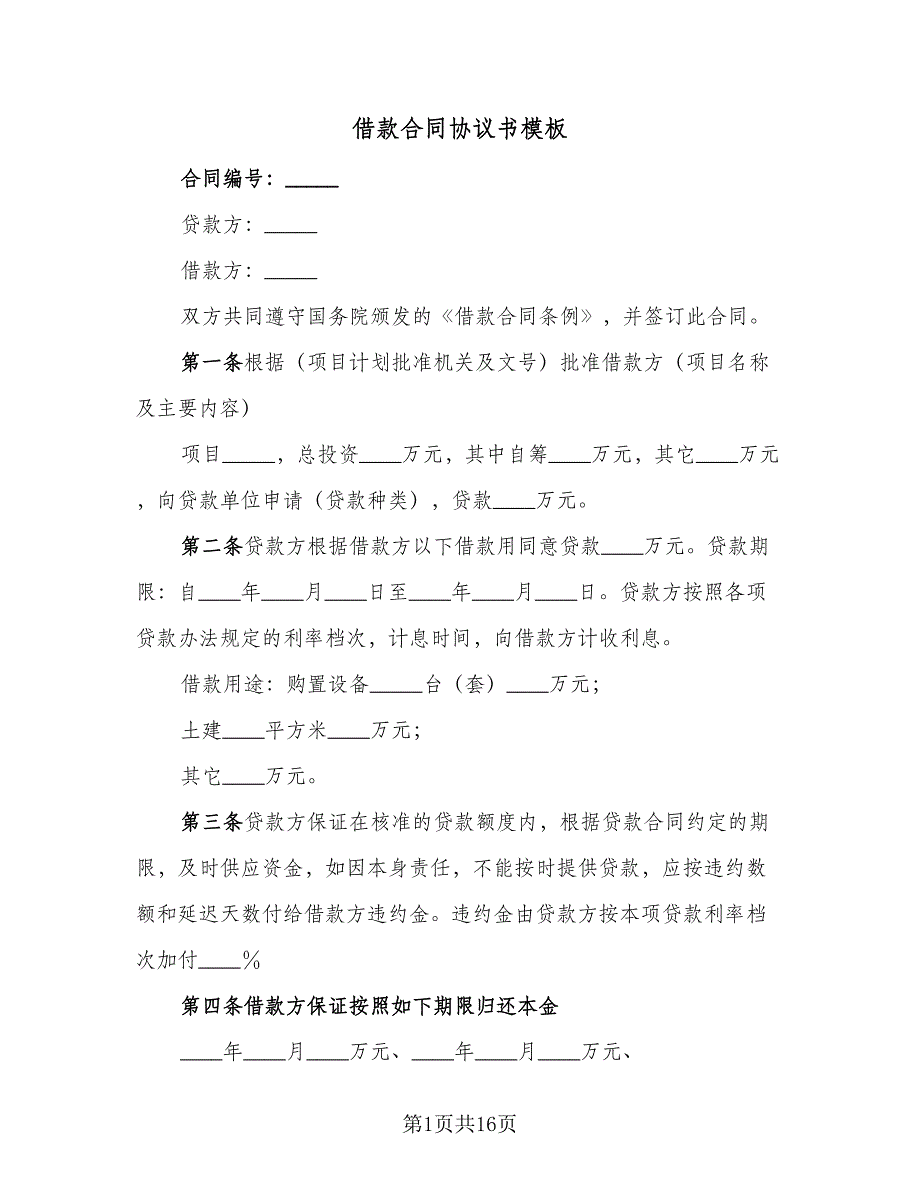 借款合同协议书模板
合同编号：_____
贷款方：_____
借款方：_____
双方共同遵守国务院颁发的《借款合同条例》，并签订此合同。
第一条根据（项目计划批准机关及文号）批准借款方（项目名称
及主要内容）
项目_____，总投资____万元，其中自筹____万元，其它____万元
，向贷款单位申请（贷款种类），贷款____万元。
第二条贷款方根据借款方以下借款用同意贷款____万元。贷款期
限：自____年____月____日至____年____月____日。贷款方按照各项
贷款办法规定的利率档次，计息时间，向借款方计收利息。
借款用途：购置设备_____台（套）____万元；
土建____平方米____万元；
其它____万元。
第三条贷款方保证在核准的贷款额度内，根据贷款合同约定的期
限，及时供应资金，如因本身责任，不能按时提供贷款，应按违约数
额和延迟天数付给借款方违约金。违约金由贷款方按本项贷款利率档
次加付____％
第四条借款方保证按照如下期限归还本金
____年____月____万元、____年____月____万元、
第1页共16页